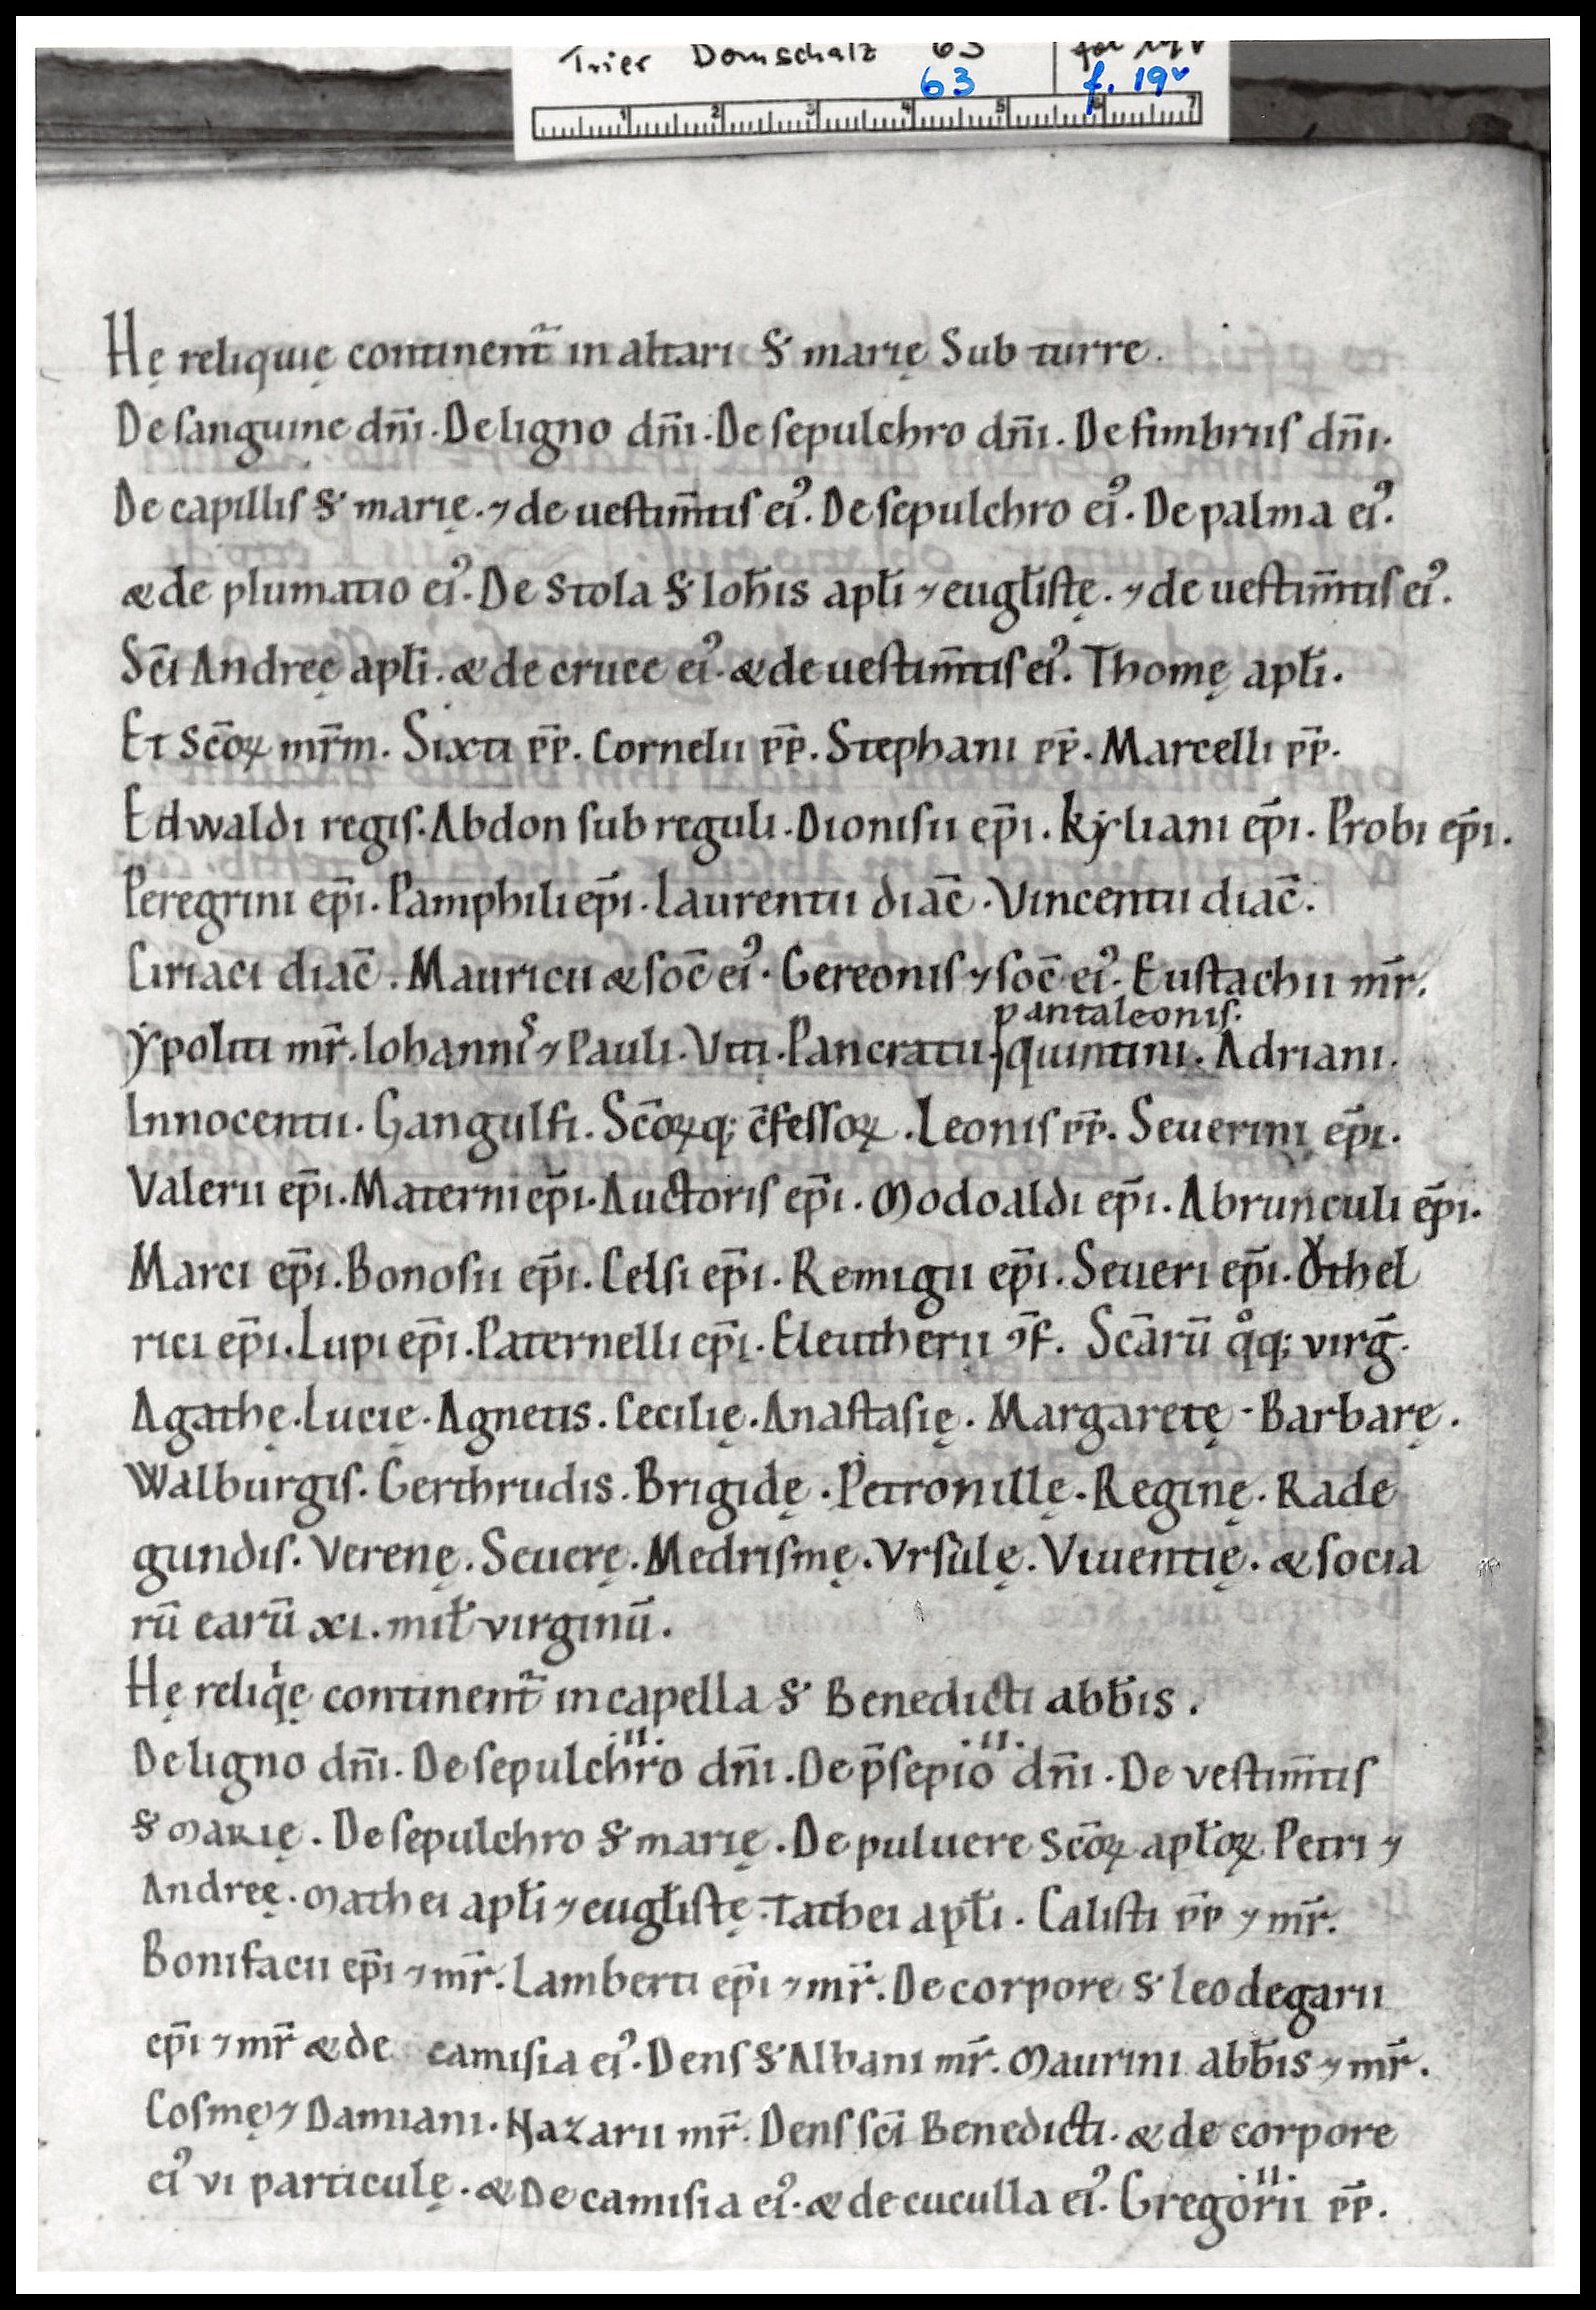 Trier Domschatz 63 fol 19v
63 f. 19v
1 2 3 4 5 6 7
Hę reliquię continent᷑ in altari S' marię Sub turre.
De sanguine dn̄i. De ligno dn̄i. De sepulchro dn̄i. De fimbriis dn̄i.
De capillis S' marię. ⁊ de uestim̄tis ei᾿. De sepulchro ei᾿. De palma ei᾿.
& de plumatio ei᾿. De Stola S' Ioh̄is apl̄i ⁊ eugl̄istę. ⁊ de uestim̄tis ei᾿.
Sc̄i Andreę apl̄i. & de cruce ei᾿. & de uestim̄tis ei᾿. Thomę apl̄i.
Et Sc̄oꝝ mr̄m. Sixti pp̄. Cornelii pp̄. Stephani pp̄. Marcelli pp̄.
Edwaldi regis. Abdon subreguli. Dionisii ep̄i. kẏliani ep̄i. Probi ep̄i.
Peregrini ep̄i. Pamphili ep̄i. Laurentii diac̄. Vincentii diac̄.
Ciriaci diac̄. Mauricii & soc̄ ei᾿. Gereonis ⁊ soc̄ ei᾿. Eustachii mr̄.
pantaleonis.
ẏpoliti mr̄. Iohanniˢ ⁊ Pauli. Viti. Pancratii. quintini. Adriani.
Innocentii. Gangulfi. Sc̄oꝝq; c̄fessoꝝ. Leonis pp̄. Seuerini ep̄i.
Valerii ep̄i. Materni ep̄i. Auctoris ep̄i. Modoaldi ep̄i. Abrunculi ep̄i.
Marci ep̄i. Bonosii ep̄i. Celsi ep̄i. Remigii ep̄i. Seueri ep̄i. Oͮthel
rici ep̄i. Lupi ep̄i. Paternelli ep̄i. Eleutherii ꝯf̄. Sc̄arū qͦq; virḡ.
Agathę. Lucię. Agnetis. Cecilię. Anastasię. Margaretę. Barbarę.
Walburgis. Gerthrudis. Brigidę. Petronillę. Reginę. Rade
gundis. Verenę. Seuerę. Medrismę. Vrsulę. Viuentię. & socia
rū earū xi. mił virginū.
Hę reliqͥę continent᷑ in capella S' Benedicti abb̄is.
.II. .II.
De ligno dn̄i. De sepulchro dn̄i. De p̄sepio dn̄i. De vestim̄tis
S' Marię. De sepulchro S' marię. De puluere Sc̄oꝝ apl̄oꝝ Petri ⁊
Andreę. Mathei apl̄i ⁊ eugl̄istę. Tathei apl̄i. Calisti pp̄ ⁊ mr̄.
Bonifacii ep̄i ⁊ mr̄. Lamberti ep̄i ⁊ mr̄. De corpore S' Leodegarii
ep̄i ⁊ mr̄ & de camisia ei᾿. Dens S' Albani mr̄. Maurini abb̄is ⁊ mr̄.
Cosmę ⁊ Damiani. Nazarii mr̄. Dens sc̄i Benedicti. & de corpore
.II.
ei᾿ vi particulę. & De camisia ei᾿. & de cuculla ei᾿. Gregorii pp̄.